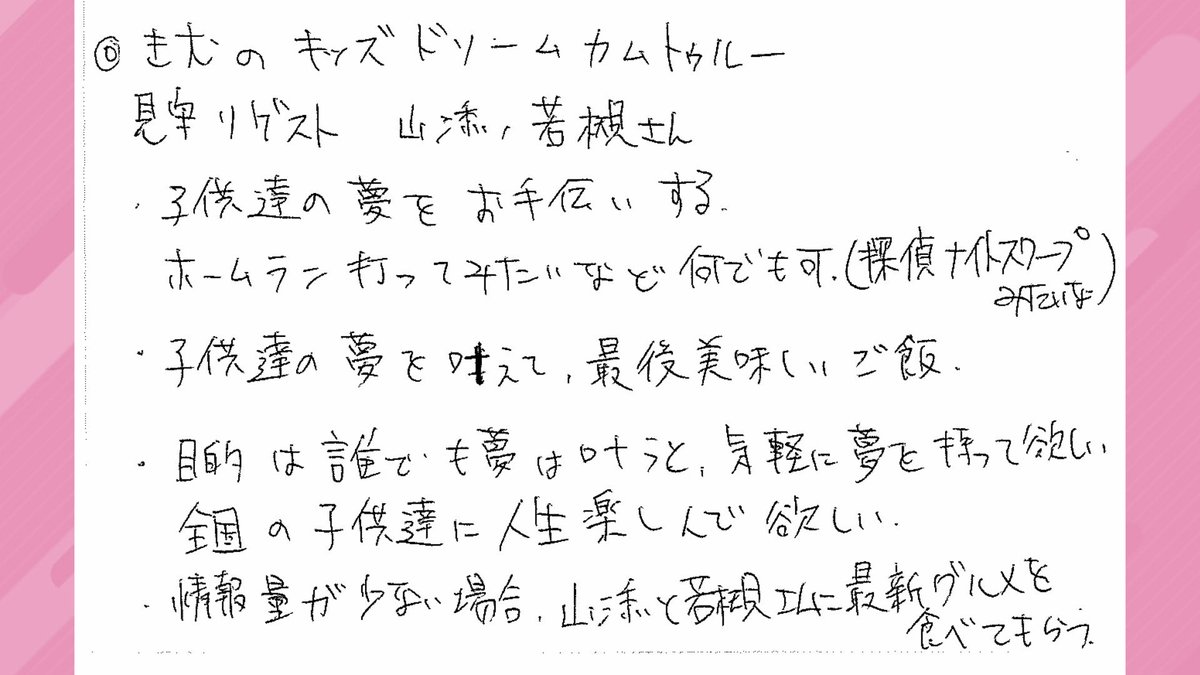 ◎きむのキッズドリームカムトゥルー
見守りゲスト 山添、若槻さん
・子供達の夢をお手伝いする.
ホームラン打ってみたいなど何でも可.(探偵ナイトスクープ
みたいな)
・子供達の夢を叶えて、最後美味しいご飯.
・目的は誰でも夢は叶うと、気軽に夢を持って欲しい
全国の子供達に人生楽しんで欲しい.
・情報量が少ない場合、山添と若槻さんに最新グルメを
食べてもらう.